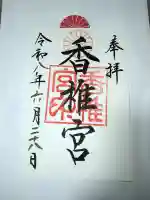 奉拝
香椎宮
香椎宮印
令和八年六月二十八日